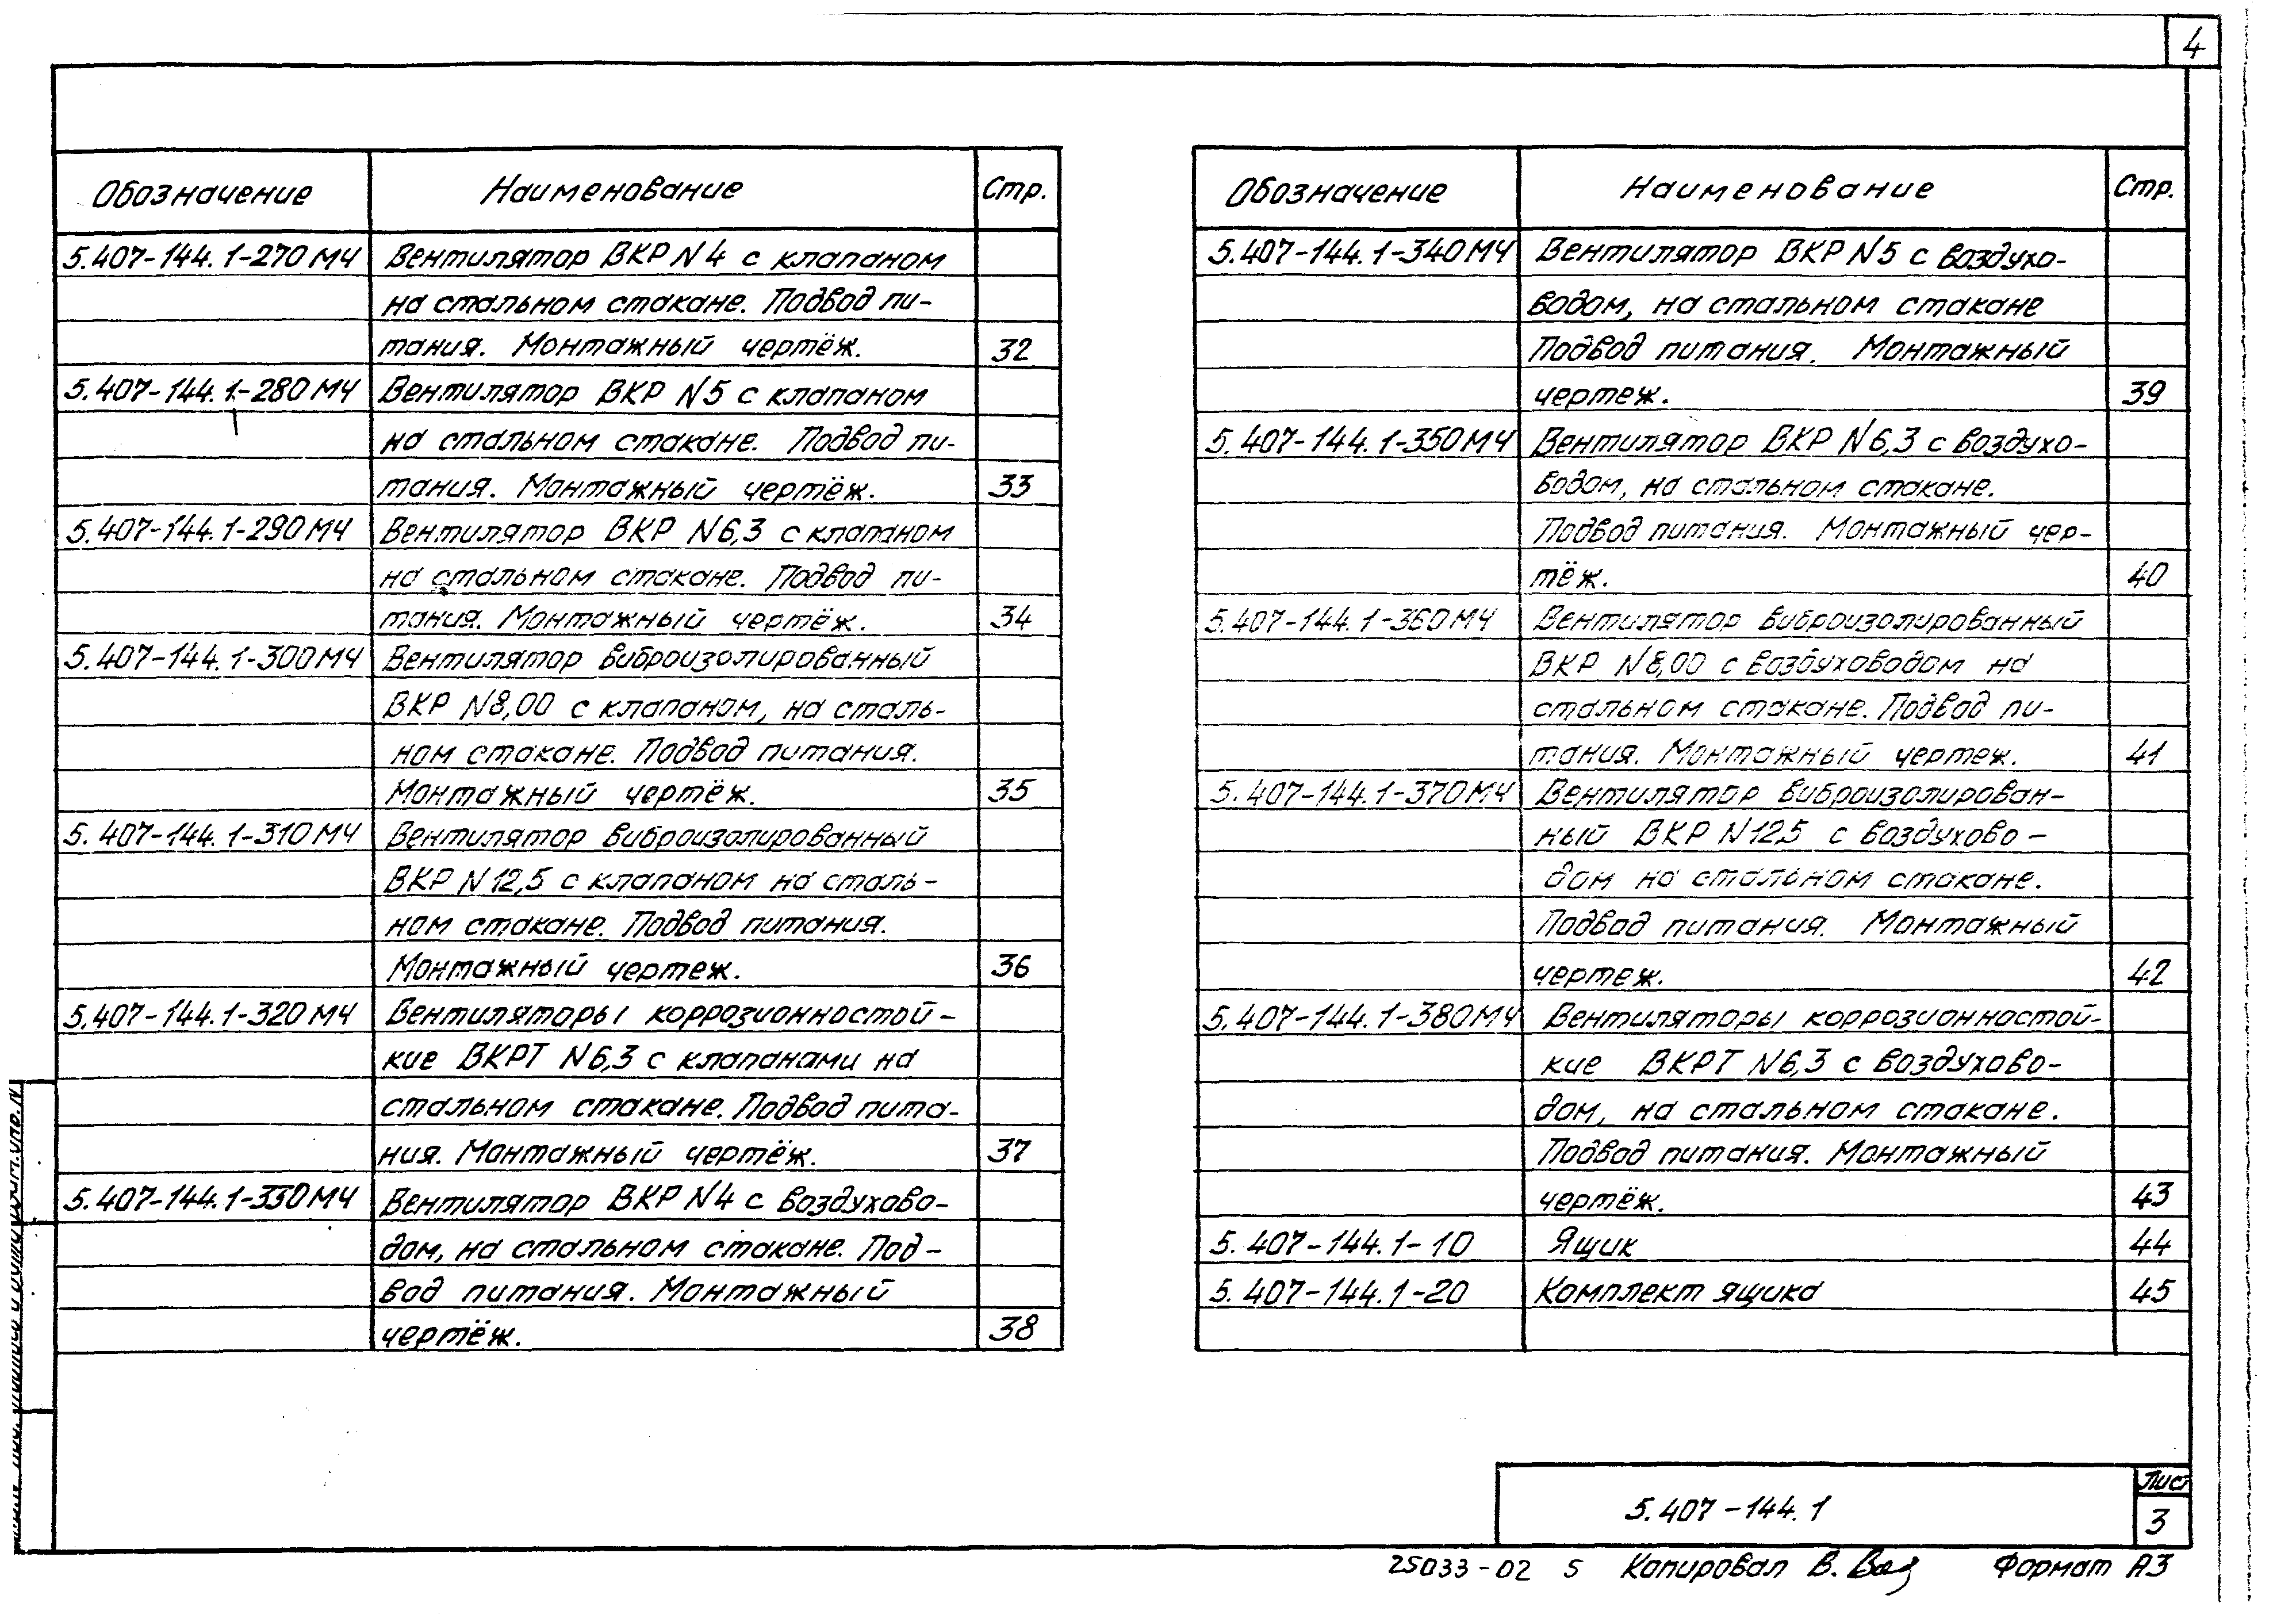 4
Обозначение Наименование Стр.
5.407-144.1-270МЧ Вентилятор ВКР N4 с клапаном
на стальном стакане. Подвод пи-
тания. Монтажный чертёж. 32
5.407-144.1-280МЧ Вентилятор ВКР N5 с клапаном
на стальном стакане. Подвод пи-
тания. Монтажный чертёж. 33
5.407-144.1-290МЧ Вентилятор ВКР N6,3 с клапаном
на стальном стакане. Подвод пи-
тания. Монтажный чертёж. 34
5.407-144.1-300МЧ Вентилятор виброизолированный
ВКР N8,00 с клапаном, на сталь-
ном стакане. Подвод питания.
Монтажный чертёж. 35
5.407-144.1-310МЧ Вентилятор виброизолированный
ВКР N12,5 с клапаном на сталь-
ном стакане. Подвод питания.
Монтажный чертеж. 36
5.407-144.1-320МЧ Вентиляторы коррозионностой-
кие ВКРТ N6,3 с клапанами на
стальном стакане. Подвод пита-
ния. Монтажный чертёж. 37
5.407-144.1-330МЧ Вентилятор ВКР N4 с воздухово-
дом, на стальном стакане. Под-
вод питания. Монтажный
чертёж. 38
Обозначение Наименование Стр.
5.407-144.1-340МЧ Вентилятор ВКР N5 с воздухо-
водом, на стальном стакане
Подвод питания. Монтажный
чертеж. 39
5.407-144.1-350МЧ Вентилятор ВКР N6,3 с воздухо-
водом, на стальном стакане.
Подвод питания. Монтажный чер-
тёж. 40
5.407-144.1-360МЧ Вентилятор виброизолированный
ВКР N8,00 с воздуховодом на
стальном стакане. Подвод пи-
тания. Монтажный чертеж. 41
5.407-144.1-370МЧ Вентилятор виброизолирован-
ный ВКР N12,5 с воздухово-
дом на стальном стакане.
Подвод питания. Монтажный
чертеж. 42
5.407-144.1-380МЧ Вентиляторы коррозионностой-
кие ВКРТ N6,3 с воздухово-
дом, на стальном стакане.
Подвод питания. Монтажный
чертёж. 43
5.407-144.1-10 Ящик 44
5.407-144.1-20 Комплект ящика 45
5.407-144.1
Лист
3
25033-02 5 Копировал В. Формат А3